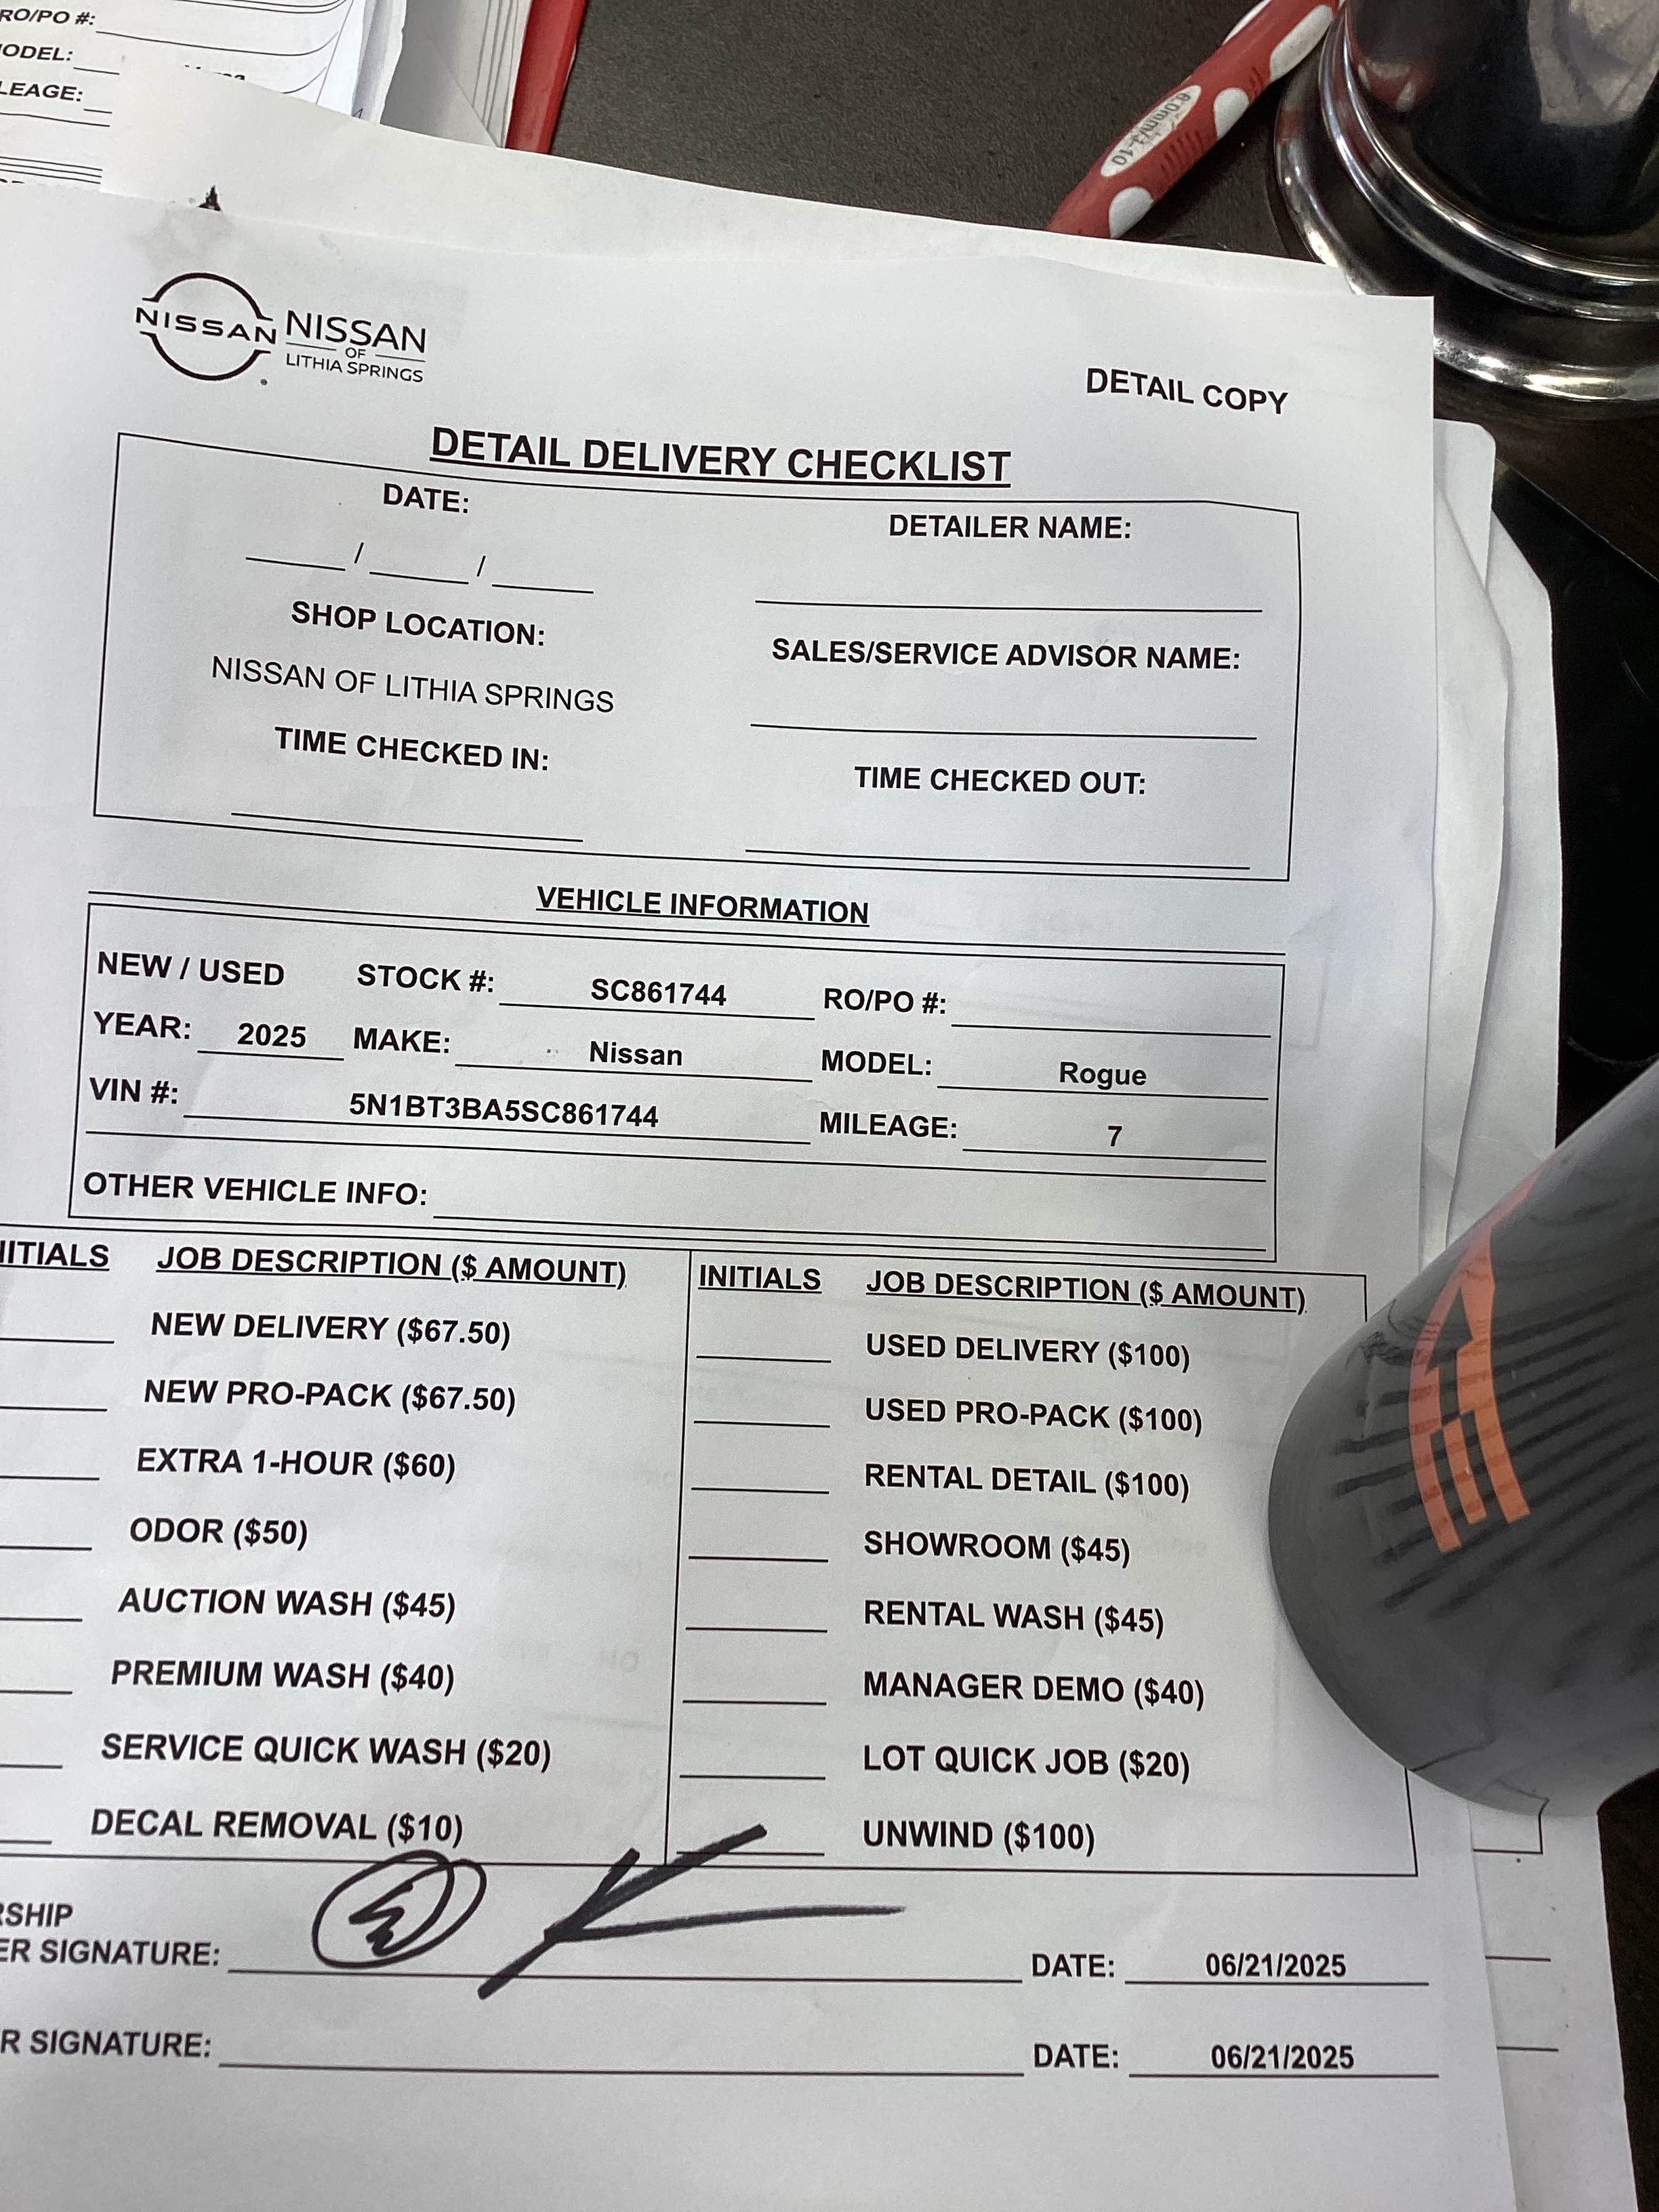 RO/PO #:
MODEL:
LEAGE:
6.0mm/J-10
NISSAN
NISSAN
OF
LITHIA SPRINGS
DETAIL COPY
DETAIL DELIVERY CHECKLIST
DATE:
DETAILER NAME:
/ /
SHOP LOCATION:
SALES/SERVICE ADVISOR NAME:
NISSAN OF LITHIA SPRINGS
TIME CHECKED IN:
TIME CHECKED OUT:
VEHICLE INFORMATION
NEW / USED STOCK #: SC861744 RO/PO #:
YEAR: 2025 MAKE: Nissan MODEL: Rogue
VIN #: 5N1BT3BA5SC861744 MILEAGE: 7
OTHER VEHICLE INFO:
NITIALS JOB DESCRIPTION ($ AMOUNT) INITIALS JOB DESCRIPTION ($ AMOUNT)
NEW DELIVERY ($67.50) USED DELIVERY ($100)
NEW PRO-PACK ($67.50) USED PRO-PACK ($100)
EXTRA 1-HOUR ($60) RENTAL DETAIL ($100)
ODOR ($50) SHOWROOM ($45)
AUCTION WASH ($45) RENTAL WASH ($45)
PREMIUM WASH ($40) MANAGER DEMO ($40)
SERVICE QUICK WASH ($20) LOT QUICK JOB ($20)
DECAL REMOVAL ($10) UNWIND ($100)
RSHIP
ER SIGNATURE: DATE: 06/21/2025
R SIGNATURE: DATE: 06/21/2025